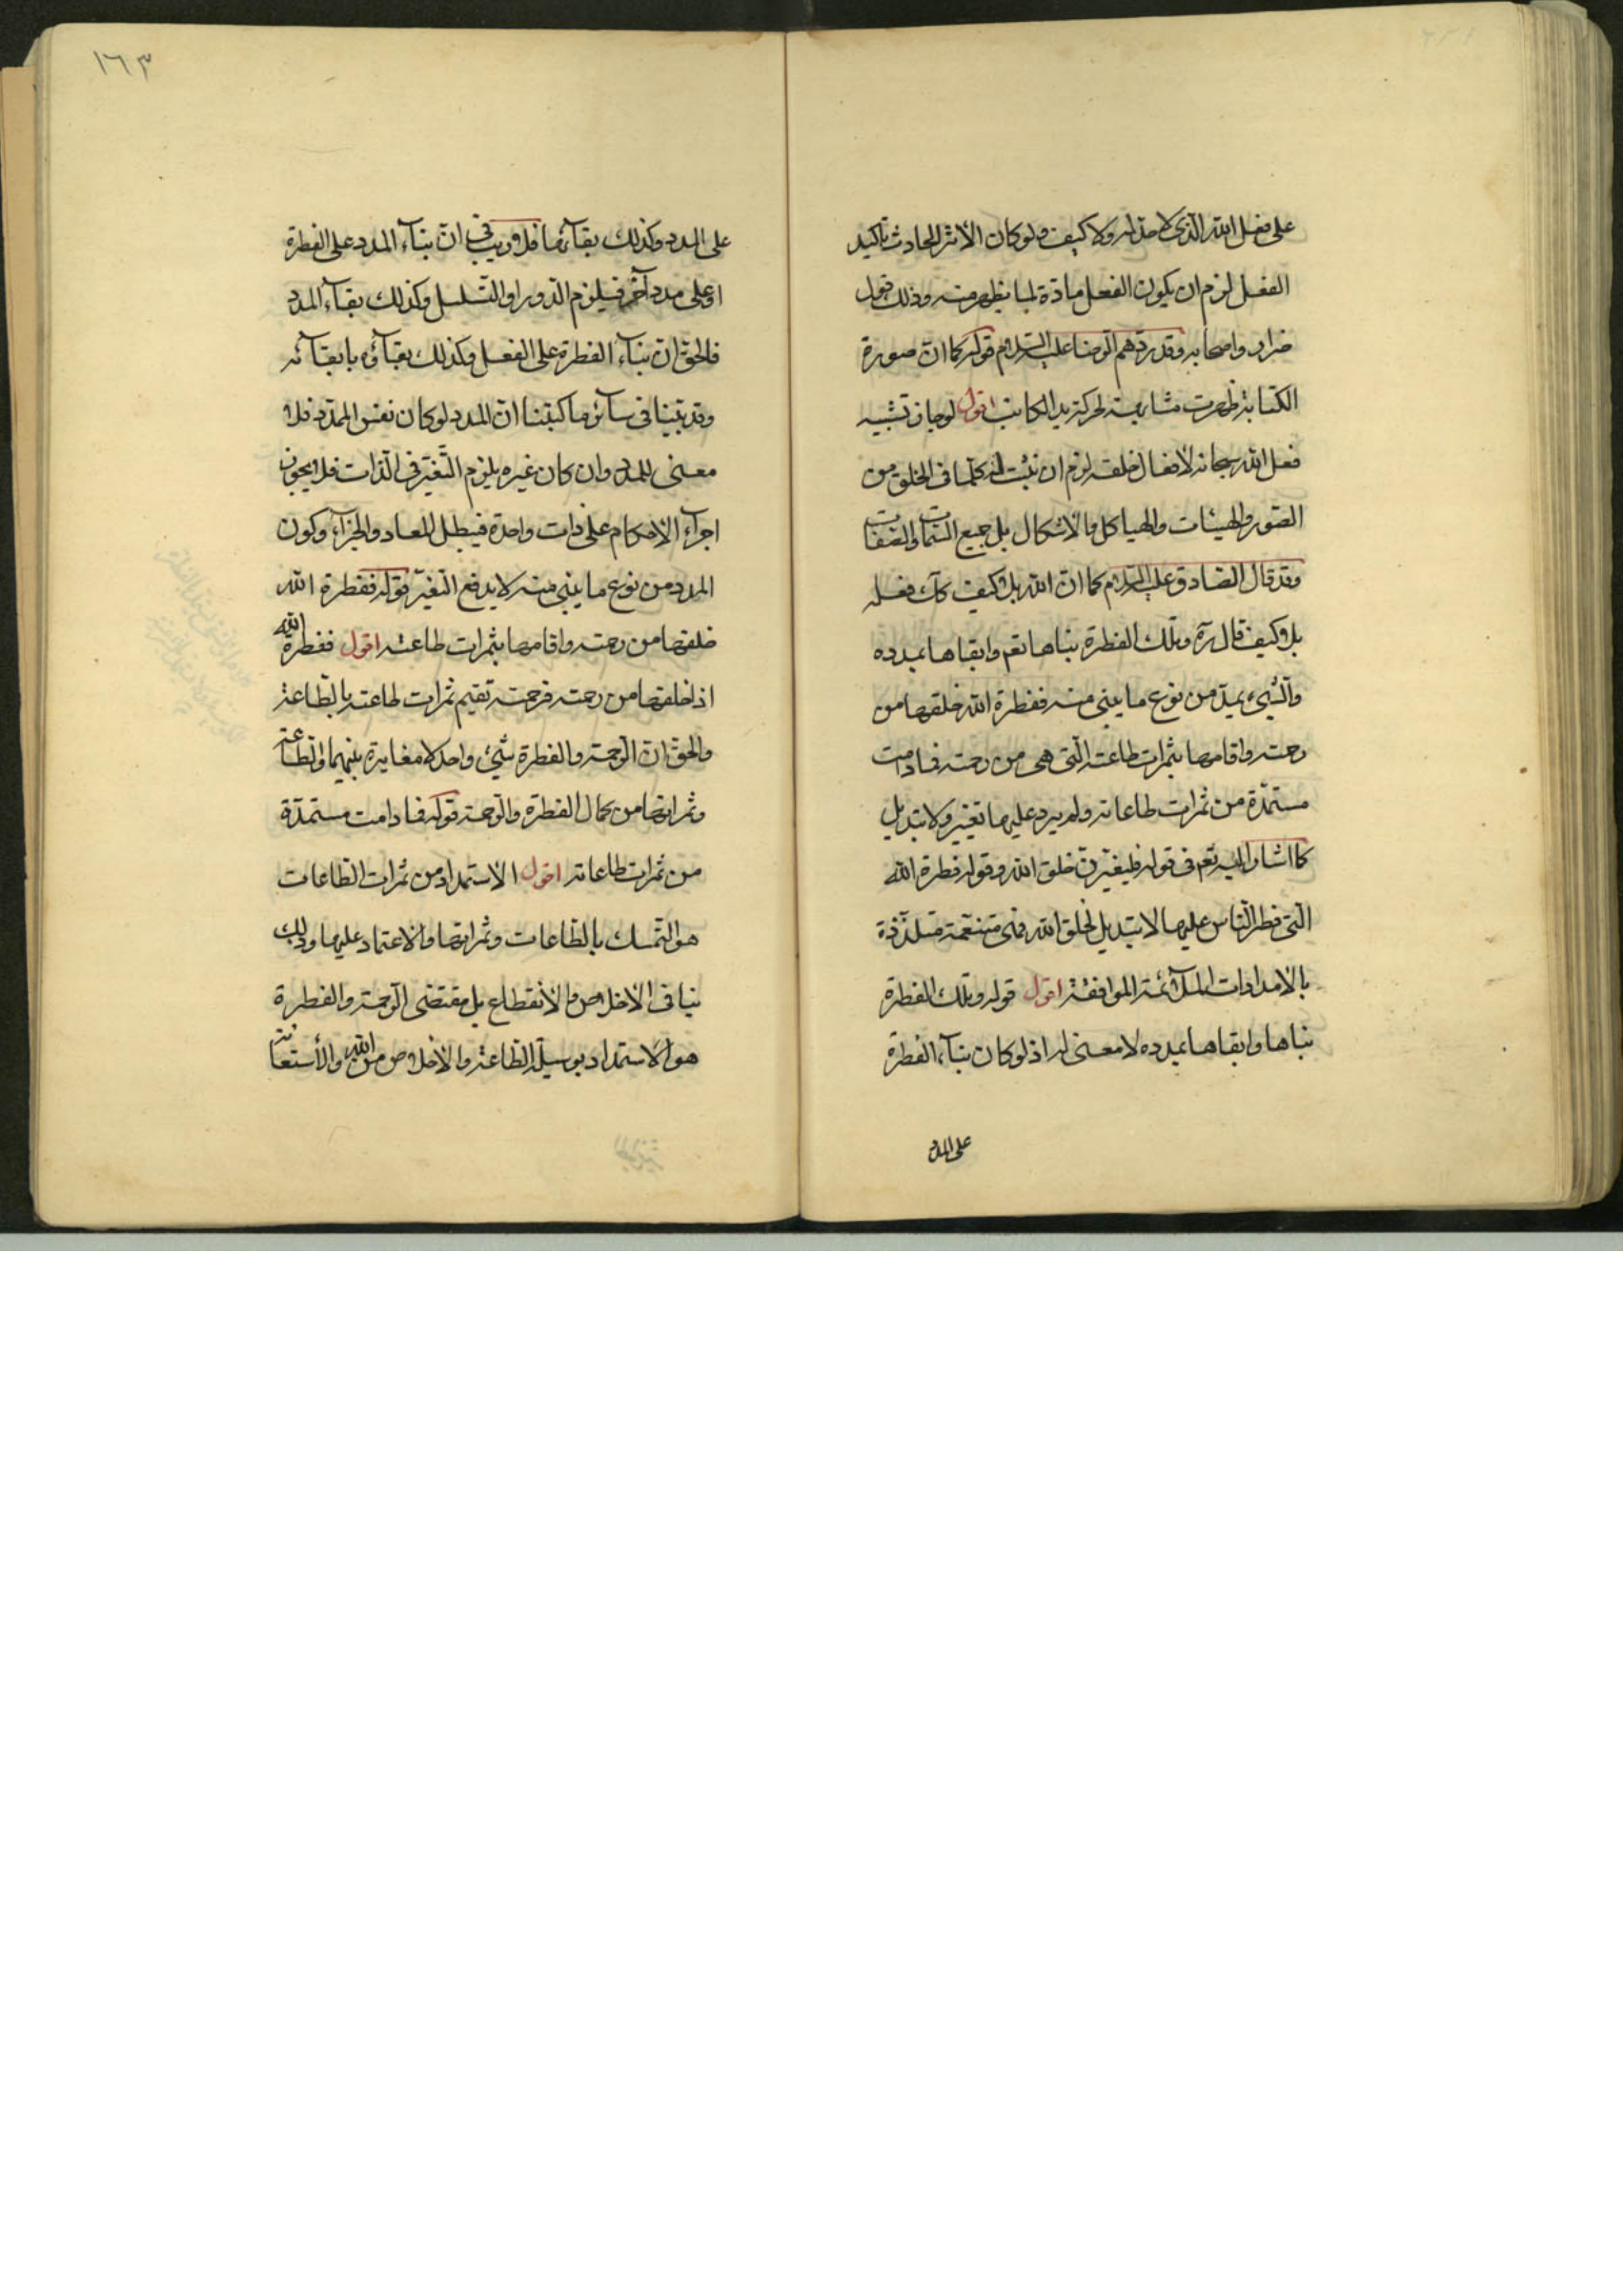 على فعل الله الذى لا حد له ولا كيف ولو كان الأثر الحادث تأكيد
الفعل لزم ان يكون الفعل مادة لما يظهر منه وذلك قول
ضرار واصحابه وقد ردهم الرضا عليه السلام قوله كما ان صورة
الكتابة ظهرت مشابهة لحركة يد الكاتب اقول لو جاز تشبيه
فعل الله سبحانه لأفعال خلقه لزم ان نثبت له كلما فى الخلق من
الصور والهيئات والهياكل والأشكال بل جميع السمات والصفات
وقد قال الصادق عليه السلام كما ان الله بلا كيف كان فعله
بلا كيف قال ره وتلك الفطرة بناها تعم وابقاها بمدده
والشىء يمد من نوع ما يبنى منه ففطرة الله خلقها من
رحمته واقامها بثمرات طاعته التى هى من رحمته فما دامت
مستمدة من ثمرات طاعاته ولم يرد عليها تغيير ولا تبديل
كما اشار اليه تعم فى قوله فليغيرن خلق الله وقوله فطرة الله
التى فطر الناس عليها لا تبديل لخلق الله فهى متنعمة متلذذة
بالامدادات الملآئمة الموافقة اقول قوله وتلك الفطرة
بناها وابقاها بمدده لا معنى له اذ لو كان بنآء الفطرة
على المدد
١٦٣
على المدد وكذلك بقآئها فلا ريب فى ان بنآء المدد على الفطرة
او على مدد آخر فيلزم الدور او التسلسل وكذلك بقآء المدد
فالحق ان بنآء الفطرة على الفعل وكذلك بقآؤه بابقآئه
وقد بينا فى سآئر ما كتبنا ان المدد لو كان نفس الممد فلا
معنى للمدد وان كان غيره يلزم التغير فى الذات فلا يجوز
اجرآء الأحكام على ذات واحدة فيبطل المعاد والجزآء وكون
المدد من نوع ما يبنى منه لا يدفع التغير قوله ففطرة الله
خلقها من رحمته واقامها بثمرات طاعته اقول ففطرة الله
اذا خلقها من رحمته فرحمته تقيم ثمرات طاعته بالطاعة
والحق ان الرحمة والفطرة شىء واحد لا مغايرة بينهما والطاعة
وثمراتها من كمال الفطرة والرحمة قوله فما دامت مستمدة
من ثمرات طاعاته اقول الاستمداد من ثمرات الطاعات
هو التمسك بالطاعات وثمراتها والاعتماد عليها وذلك
ينافى الاخلاص والأنقطاع بل مقتضى الرحمة والفطرة
هو الاستمداد بوسيلة الطاعة والأخلاص من الله والأستعانة